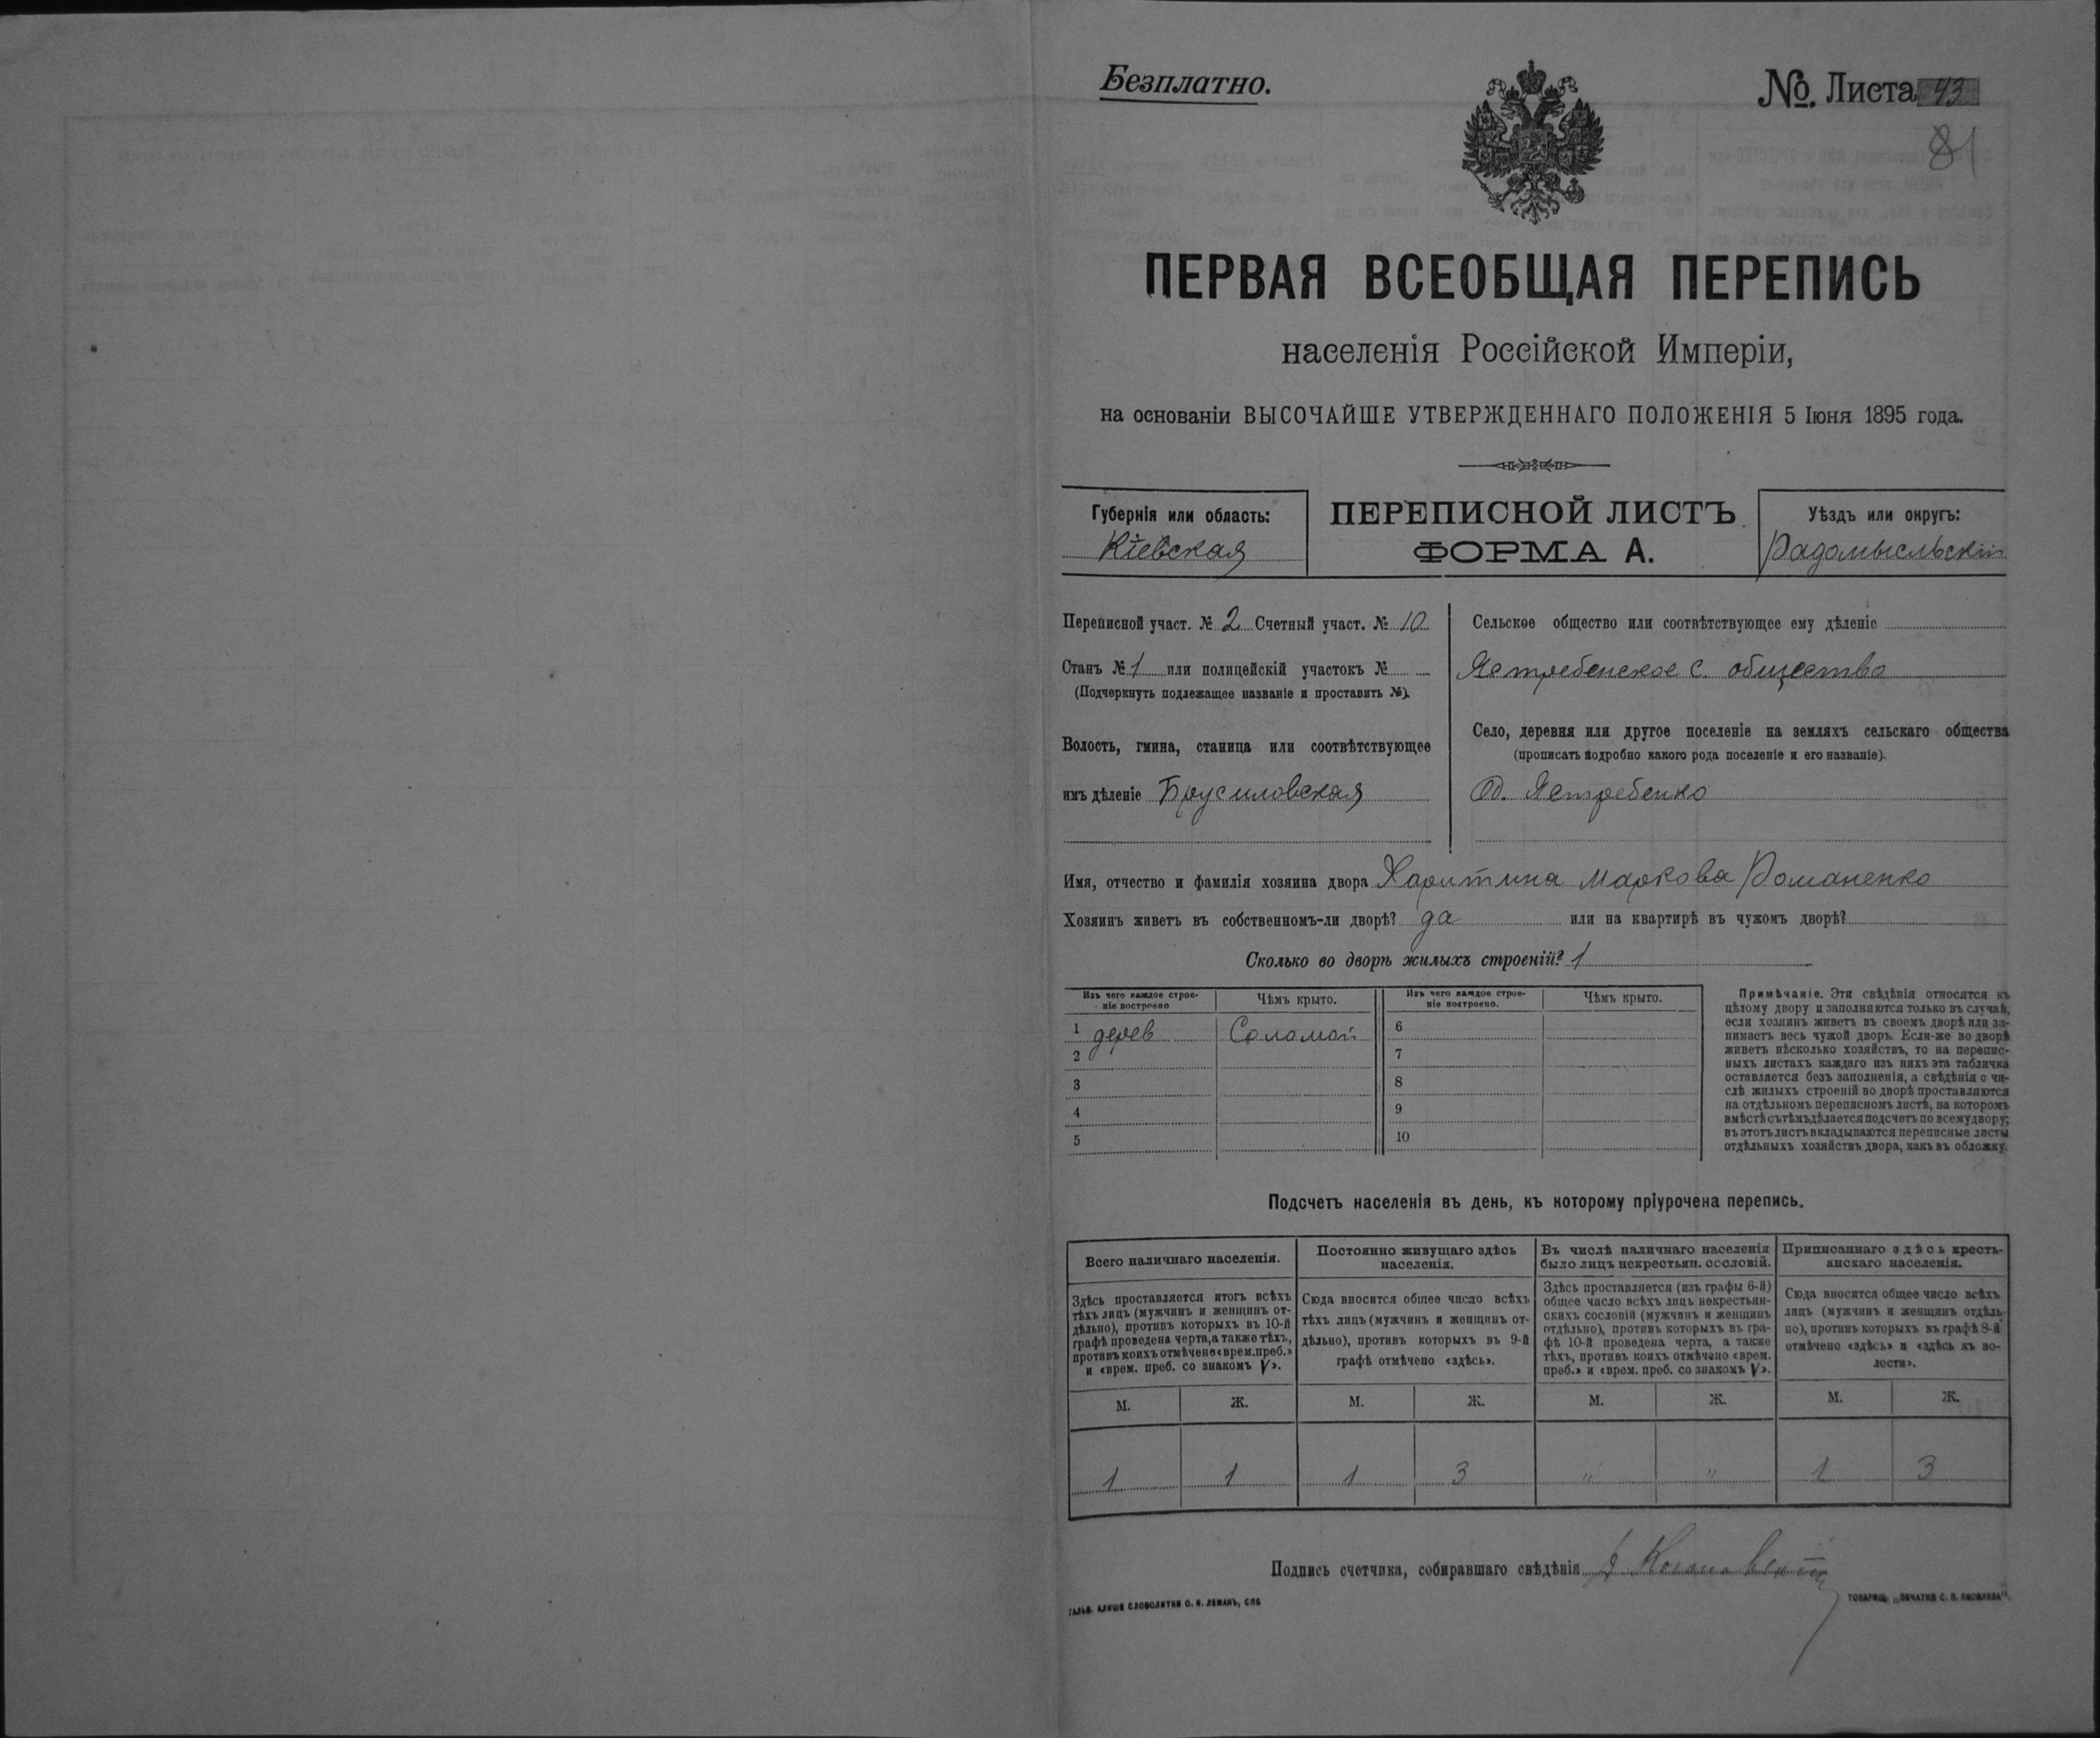 Безплатно.
№. Листа 43
81
ПЕРВАЯ ВСЕОБЩАЯ ПЕРЕПИСЬ
населенія Россійской Имперіи,
на основаніи ВЫСОЧАЙШЕ УТВЕРЖДЕННАГО ПОЛОЖЕНІЯ 5 Іюня 1895 года.
Губернія или область:
Кіевская
ПЕРЕПИСНОЙ ЛИСТЪ
ФОРМА А.
Уѣздъ или округъ:
Радомысльскій
Переписной участ. № 2 Счетный участ. № 10
Станъ № 1 или полицейскій участокъ №
(Подчеркнуть подлежащее названіе и проставить №).
Волость, гмина, станица или соотвѣтствующее
имъ дѣленіе Брусиловская
Сельское общество или соотвѣтствующее ему дѣленіе
Ястребенское с. общество
Село, деревня или другое поселеніе на земляхъ сельскаго общества
(прописать подробно какого рода поселеніе и его названіе).
Д. Ястребенко
Имя, отчество и фамилія хозяина двора Харитина Маркова Романенко
Хозяинъ живетъ въ собственномъ-ли дворѣ? да или на квартирѣ въ чужомъ дворѣ?
Сколько во дворѣ жилыхъ строеній? 1
Изъ чего каждое строе-
ніе построено
Чѣмъ крыто.
Изъ чего каждое строе-
ніе построено.
Чѣмъ крыто.
1 дерев Соломой 6
2 7
3 8
4 9
5 10
Примѣчаніе. Эти свѣдѣнія относятся къ
цѣлому двору и заполняются только въ случаѣ,
если хозяинъ живетъ въ своемъ дворѣ или за-
нимаетъ весь чужой дворъ. Если-же во дворѣ
живетъ нѣсколько хозяйствъ, то на перепис-
ныхъ листахъ каждаго изъ нихъ эта табличка
оставляется безъ заполненія, а свѣдѣнія о чи-
слѣ жилыхъ строеній во дворѣ проставляются
на отдѣльномъ переписномъ листѣ, на которомъ
вмѣстѣ съ тѣмъ дѣлается подсчетъ по всему двору;
въ этотъ листъ вкладываются переписные листы
отдѣльныхъ хозяйствъ двора, какъ въ обложку.
Подсчетъ населенія въ день, къ которому пріурочена перепись.
Всего наличнаго населенія.
Здѣсь проставляется итогъ всѣхъ
тѣхъ лицъ (мужчинъ и женщинъ от-
дѣльно), противъ которыхъ въ 10-й
графѣ проведена черта, а также тѣхъ,
противъ коихъ отмѣчено «врем. преб.»
и «врем. преб. со знакомъ V».
Постоянно живущаго здѣсь
населенія.
Сюда вносится общее число всѣхъ
тѣхъ лицъ (мужчинъ и женщинъ от-
дѣльно), противъ которыхъ въ 9-й
графѣ отмѣчено «здѣсь».
Въ числѣ наличнаго населенія
было лицъ некрестьян. сословій.
Здѣсь проставляется (изъ графы 6-й)
общее число всѣхъ лицъ некрестьян-
скихъ сословій (мужчинъ и женщинъ
отдѣльно), противъ которыхъ въ гра-
фѣ 10-й проведена черта, а также
тѣхъ, противъ коихъ отмѣчено «врем.
преб.» и «врем. преб. со знакомъ V».
Приписаннаго здѣсь кресть-
янскаго населенія.
Сюда вносится общее число всѣхъ
лицъ (мужчинъ и женщинъ отдѣль-
но), противъ которыхъ въ графѣ 8-й
отмѣчено «здѣсь» и «здѣсь къ во-
лости».
М. Ж. М. Ж. М. Ж. М. Ж.
1 1 1 3 " " 1 3
Подпись счетчика, собиравшаго свѣдѣнія
ГАЛЬВ. КЛИШЕ СЛОВОЛИТНИ О. И. ЛЕМАНЪ, СПБ
ТОВАРИЩ. „ПЕЧАТНЯ С. П. ЯКОВЛЕВА".